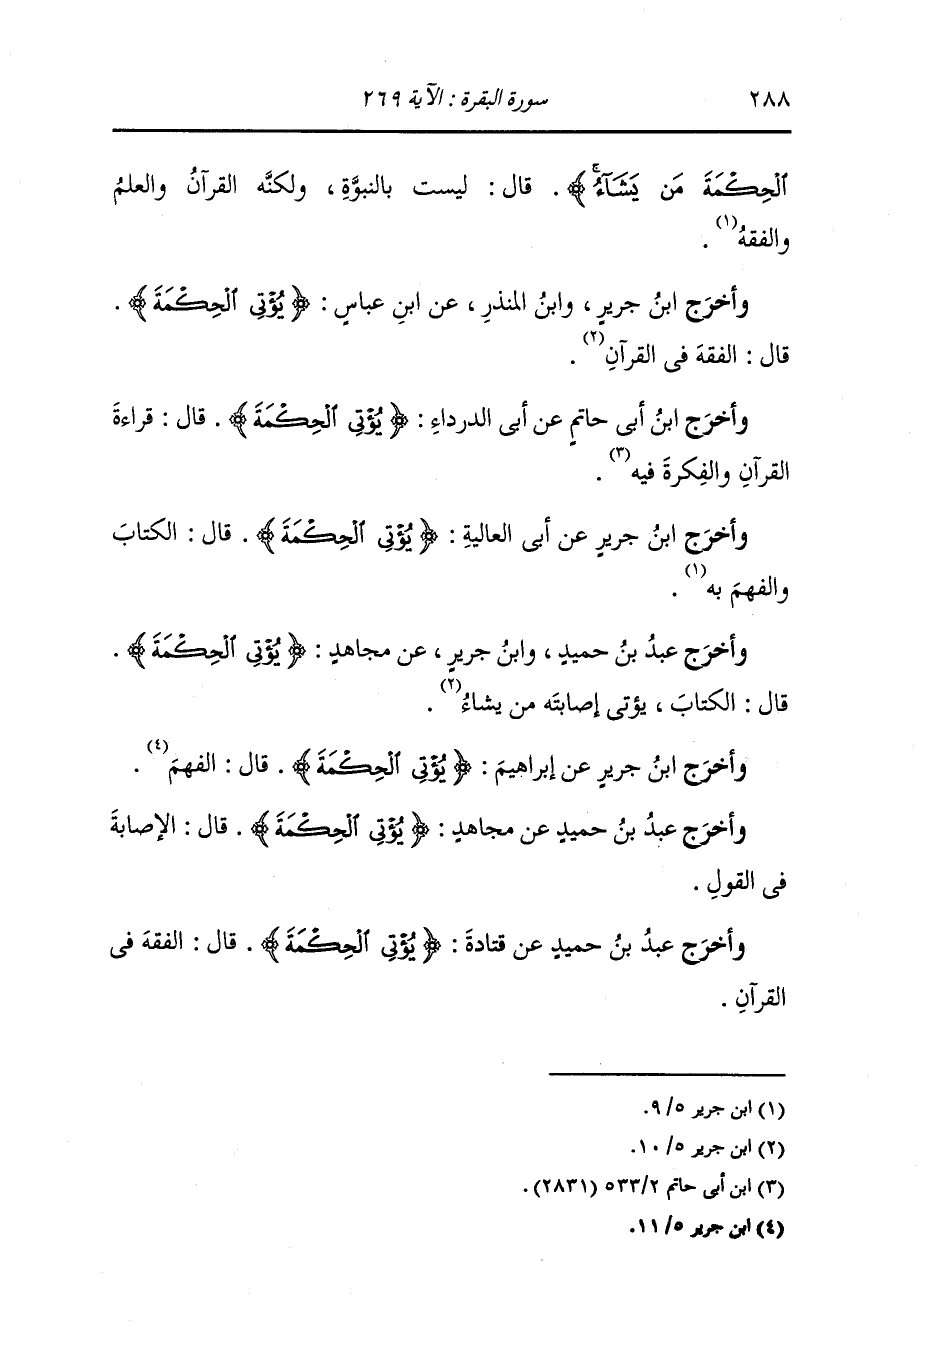 ٢٨٨ سورة البقرة : الآية ٢٦٩
ٱلْحِكْمَةَ مَن يَشَآءُۚ﴾ . قال : ليست بالنبوَّةِ ، ولكنَّه القرآنُ والعلمُ
والفقهُ(١) .
وأخرَج ابنُ جريرٍ ، وابنُ المنذرِ ، عن ابنِ عباسٍ : ﴿يُؤْتِى ٱلْحِكْمَةَ﴾ .
قال : الفقهَ فى القرآنِ(٢) .
وأخرَج ابنُ أبى حاتمٍ عن أبى الدرداءِ : ﴿يُؤْتِى ٱلْحِكْمَةَ﴾ . قال : قراءةَ
القرآنِ والفِكرةَ فيه(٣) .
وأخرَج ابنُ جريرٍ عن أبى العاليةِ : ﴿يُؤْتِى ٱلْحِكْمَةَ﴾ . قال : الكتابَ
والفهمَ به(١) .
وأخرَج عبدُ بنُ حميدٍ ، وابنُ جريرٍ ، عن مجاهدٍ : ﴿يُؤْتِى ٱلْحِكْمَةَ﴾ .
قال : الكتابَ ، يؤتى إصابتَه من يشاءُ(٢) .
وأخرَج ابنُ جريرٍ عن إبراهيمَ : ﴿يُؤْتِى ٱلْحِكْمَةَ﴾ . قال : الفهمَ(٤) .
وأخرَج عبدُ بنُ حميدٍ عن مجاهدٍ : ﴿يُؤْتِى ٱلْحِكْمَةَ﴾ . قال : الإصابةَ
فى القولِ .
وأخرَج عبدُ بنُ حميدٍ عن قتادةَ : ﴿يُؤْتِى ٱلْحِكْمَةَ﴾ . قال : الفقهَ فى
القرآنِ .
(١) ابن جرير ٥/ ٩.
(٢) ابن جرير ٥/ ١٠.
(٣) ابن أبى حاتم ٥٣٣/٢ (٢٨٣١).
(٤) ابن جرير ٥/ ١١.